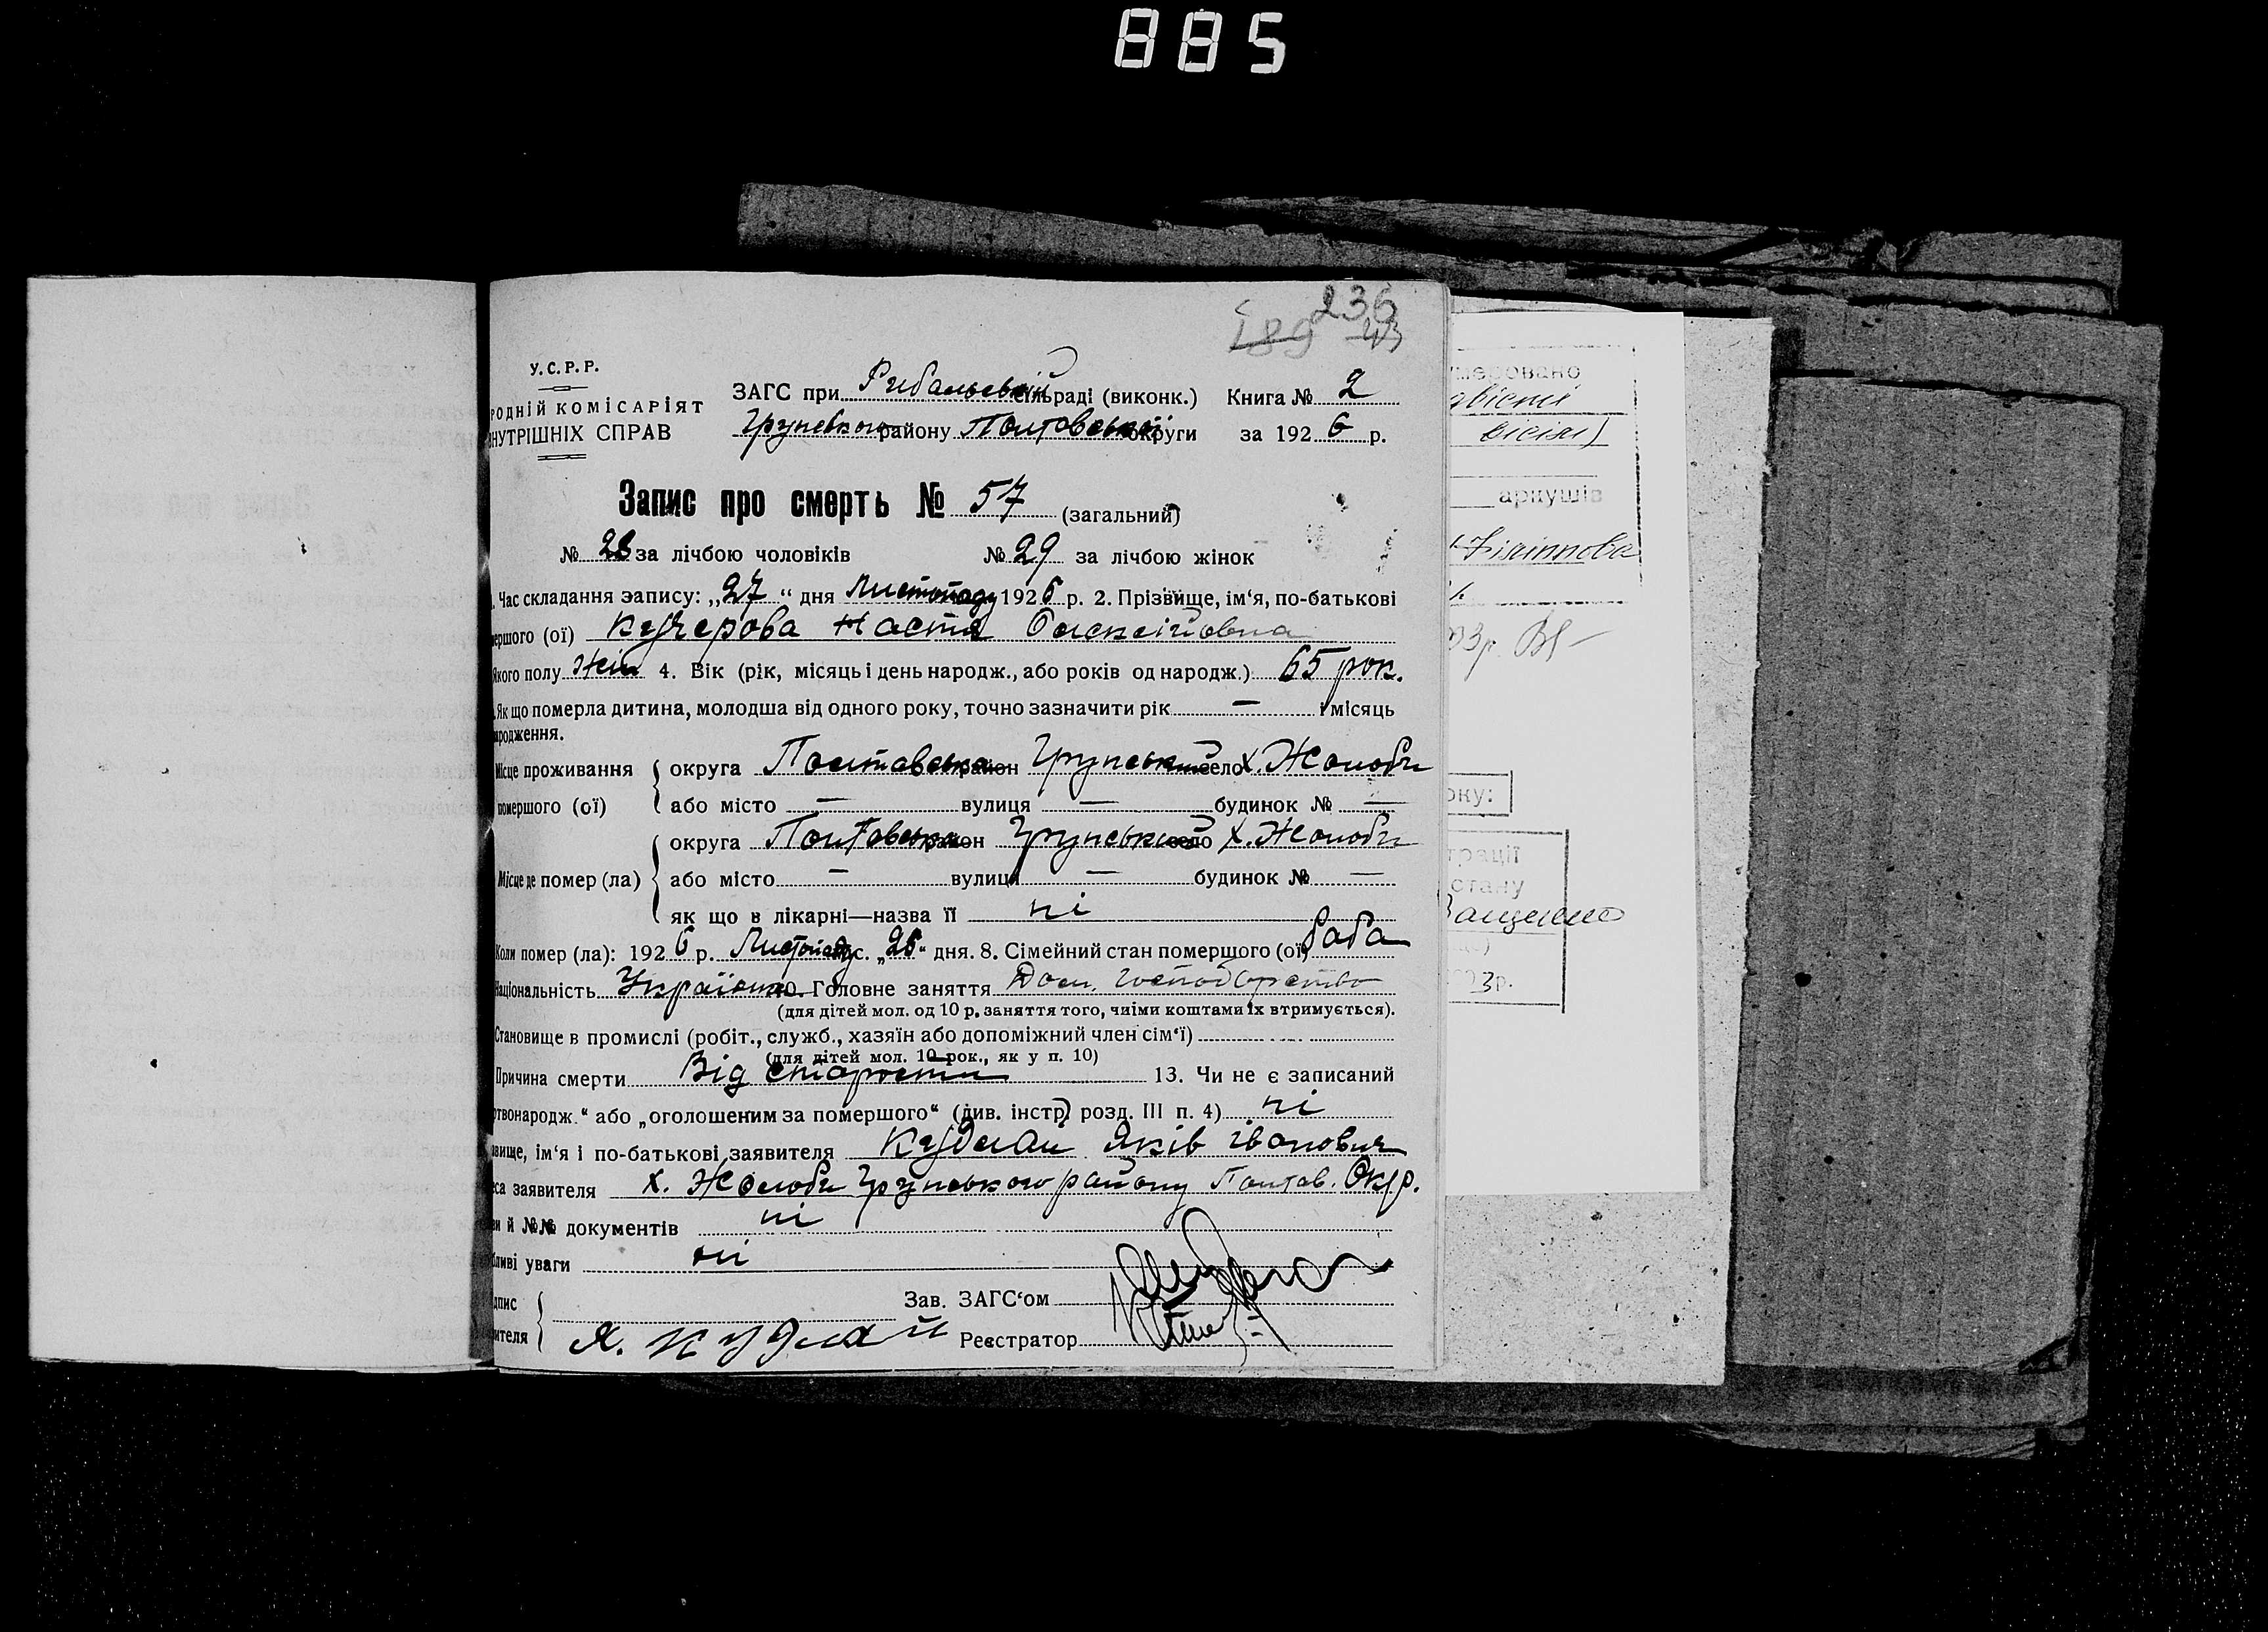 885
236
189 43
У.С.Р.Р.
ЗАГС при Рибальській сільраді (виконк.) Книга № 2
РОДНІЙ КОМІСАРІЯТ
НУТРІШНІХ СПРАВ
Грунського району Полтовської округи за 1926 р.
Запис про смерть № 57 (загальний)
№ 28 за лічбою чоловіків № 29 за лічбою жінок
Час складання запису: „27“ дня Листопаду 1926 р. 2. Прізвище, ім‘я, по-батькові
ершого (ої) Кучерова Настя Олексіївна
якого полу Жін 4. Вік (рік, місяць і день народж., або років од народж.) 65 рок.
Як що померла дитина, молодша від одного року, точно зазначити рік — і місяць
ародження.
Місце проживання округа Полтавська район Грунський село х. Жолоби
помершого (ої) або місто — вулиця — будинок № —
округа Полтовська район Грунський село х. Жолоби
Місце де помер (ла) або місто — вулиця — будинок № —
як що в лікарні—назва її ні
Коли помер (ла): 1926 р. Листопаду с. „26“ дня. 8. Сімейний стан помершого (ої) баба
Національність Українка 10. Головне заняття Дом. Господарство
(для дітей мол. од 10 р. заняття того, чиїми коштами їх втримується).
Становище в промислі (робіт., служб., хазяїн або допоміжний член сім‘ї)
(для дітей мол. 10 рок., як у п. 10)
Причина смерти Від старости 13. Чи не є записаний
ртвонародж.“ або „оголошеним за помершого“ (див. інстр.) розд. III п. 4) ні
звище, ім‘я і по-батькові заявителя Кудлай Яків Іванович
еса заявителя х. Жолоби Грунського району Полтав. Окр.
ви й №№ документів ні
бливі уваги ні
дпис
Зав. ЗАГС‘ом
вителя Я. Кудлай Реєстратор
меровано
двісті
вісім)
аркушів
Філіппова
93р.
оку:
трації
стану
Ващенко
3р.